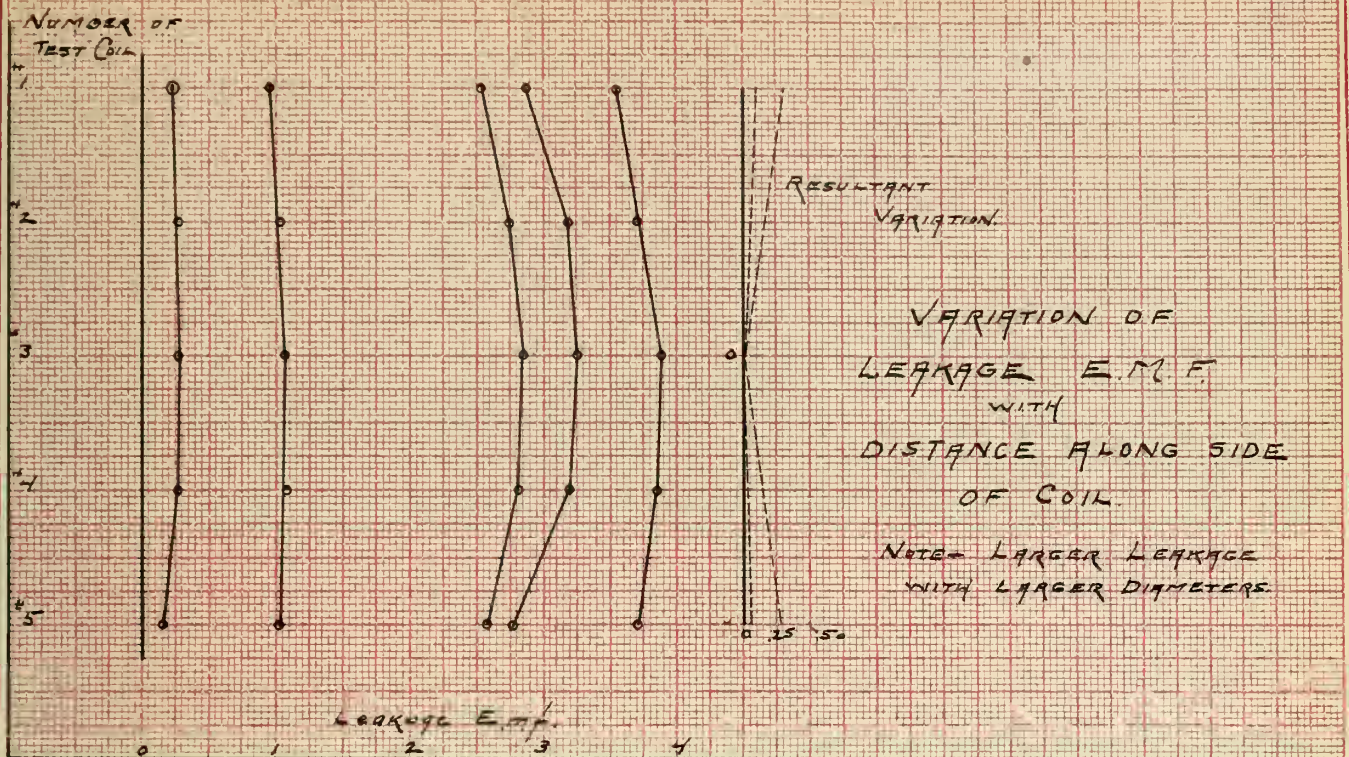 NUMBER OF
TEST COIL
#1
#2
#3
#4
#5
RESULTANT
VARIATION.
VARIATION OF
LEAKAGE E.M.F.
WITH
DISTANCE ALONG SIDE
OF COIL.
NOTE- LARGER LEAKAGE
WITH LARGER DIAMETERS.
0 .25 .50
Leakage E.m.f.
0 1 2 3 4